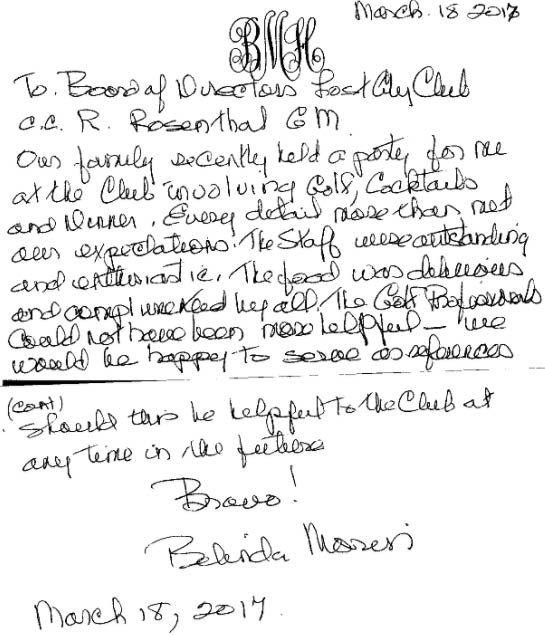 March. 18 2017
BMH
To. Board of Directors Lost City Club
c.c. R. Rosenthal GM
Our family recently held a party for me
at the Club involving Golf, Cocktails
and Dinner. Every detail more than met
our expectations. The Staff were outstanding
and enthusiastic. The food was delicious
and complimented by all. The Golf Professionals
Could not have been more helpful – we
would be happy to serve as references
(cont)
should this be helpful to the Club at
any time in the future
Bravo!
Belinda
March 18, 2017.